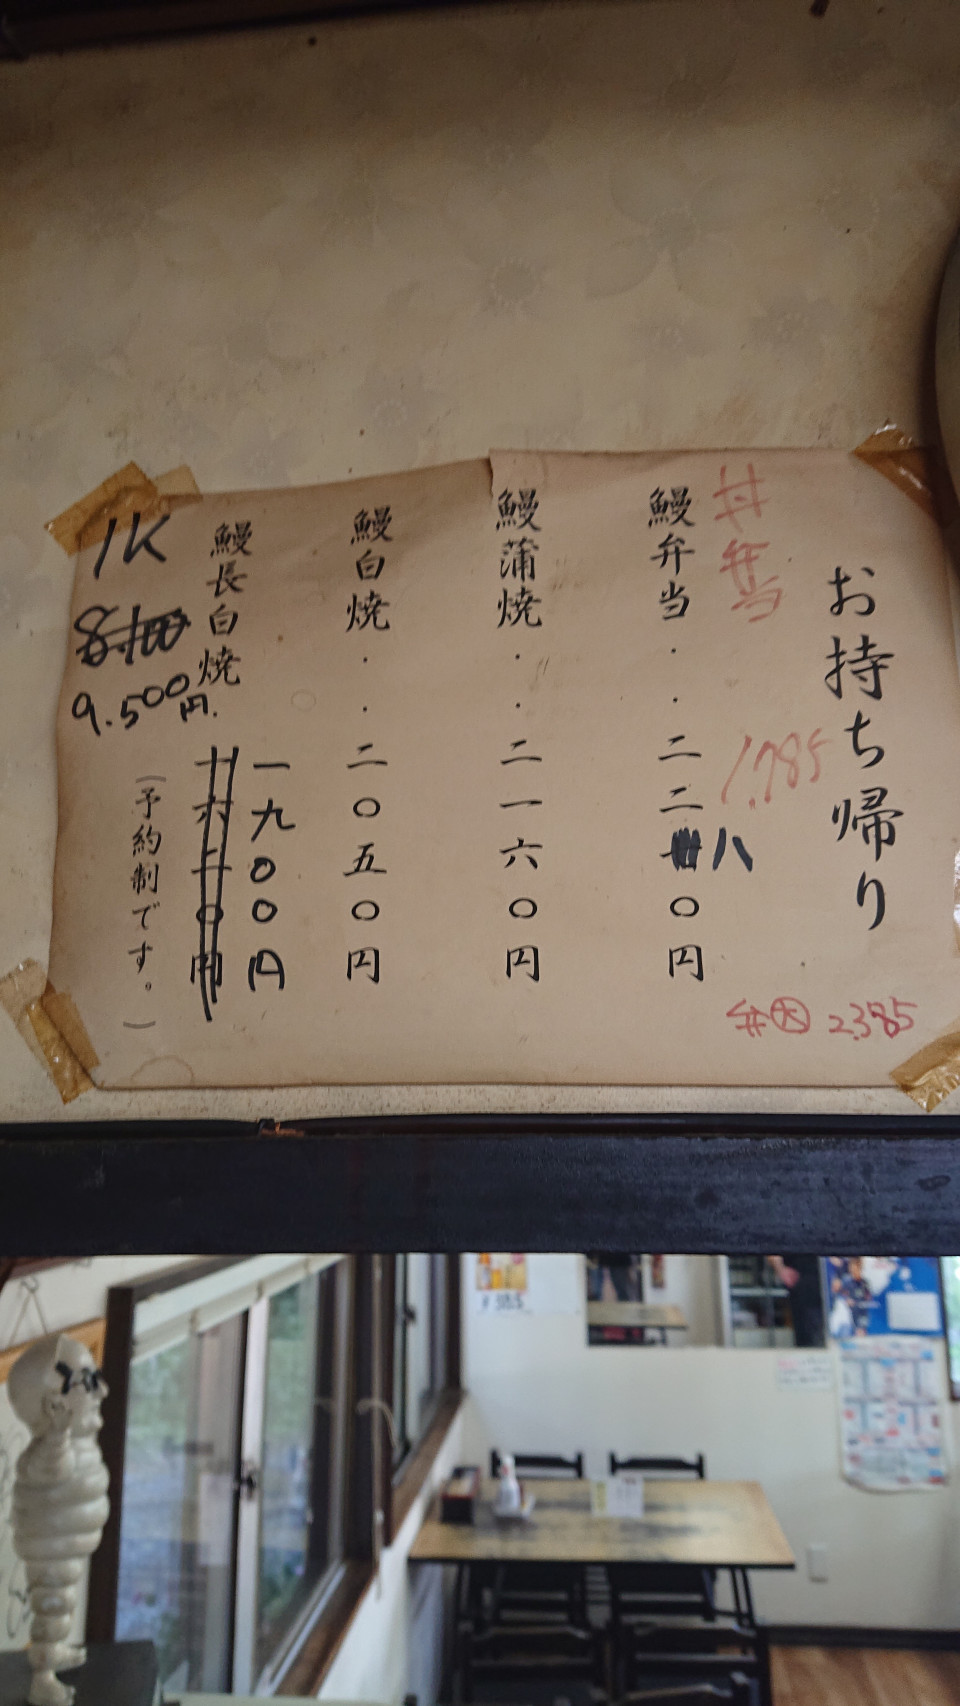 お持ち帰り
丼弁当 1.785
丼大 2.385
鰻弁当・・二二八〇円
鰻蒲焼・・二一六〇円
鰻白焼・・二〇五〇円
鰻長白焼 一九〇〇円
(予約制です。)
1K
9.500円.